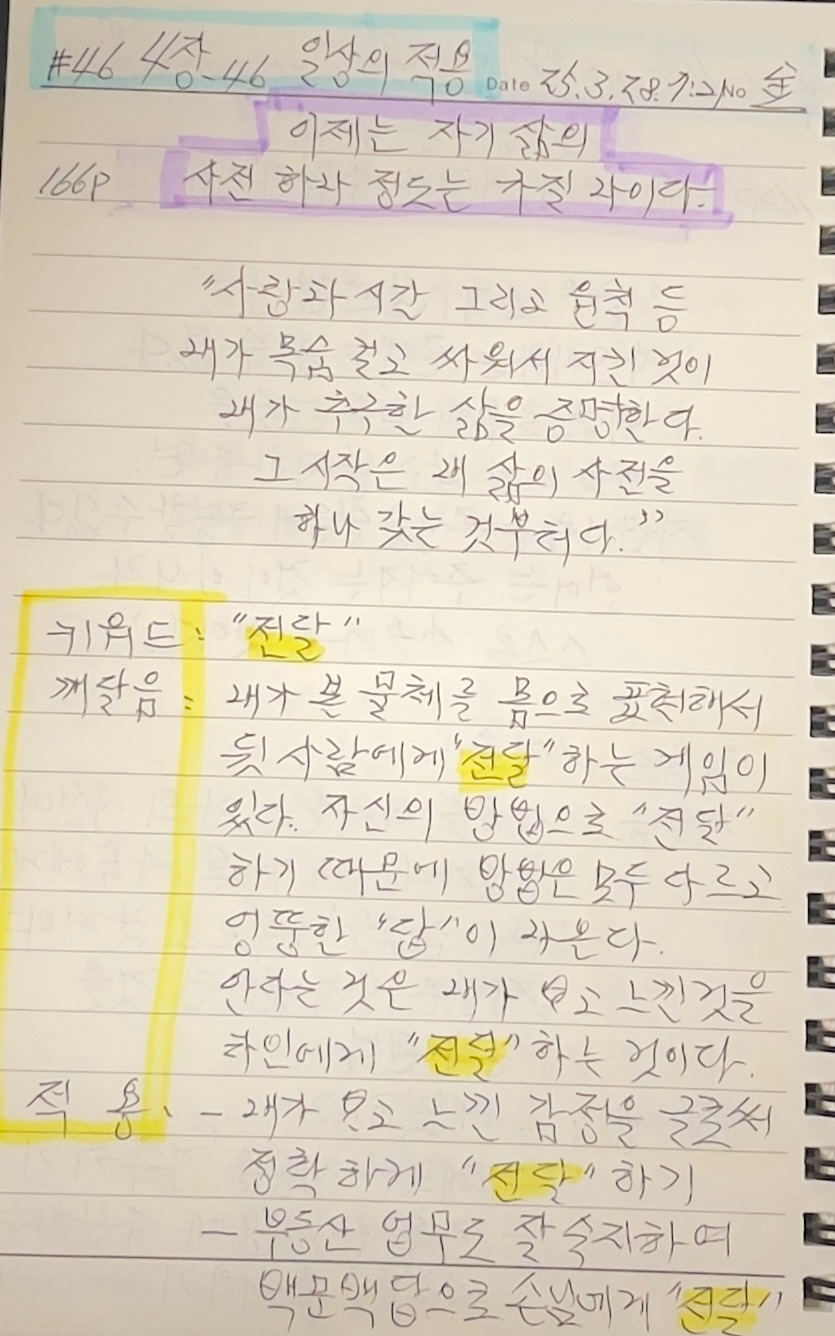 #46 4장-46 일상의 적용 Date 25.3.28.7:21 No 金
이제는 자기 삶의
166P 사전 하나 정도는 가질 나이다.
"사람과 시간 그리고 원칙 등
내가 목숨 걸고 싸워서 지킨 것이
내가 추구한 삶을 증명한다.
그 시작은 내 삶의 사전을
하나 갖는 것부터다."
키워드: "전달"
깨달음: 내가 본 물체를 몸으로 표현해서
뒷사람에게 "전달"하는 게임이
있다. 자신의 방법으로 "전달"
하기 때문에 방법은 모두 다르고
엉뚱한 "답"이 나온다.
안다는 것은 내가 보고 느낀것을
타인에게 "전달"하는 것이다.
적 용: - 내가 보고 느낀 감정을 글로써
정확하게 "전달"하기
- 부동산 업무도 잘 숙지하여
백문백답으로 손님에게 "전달"